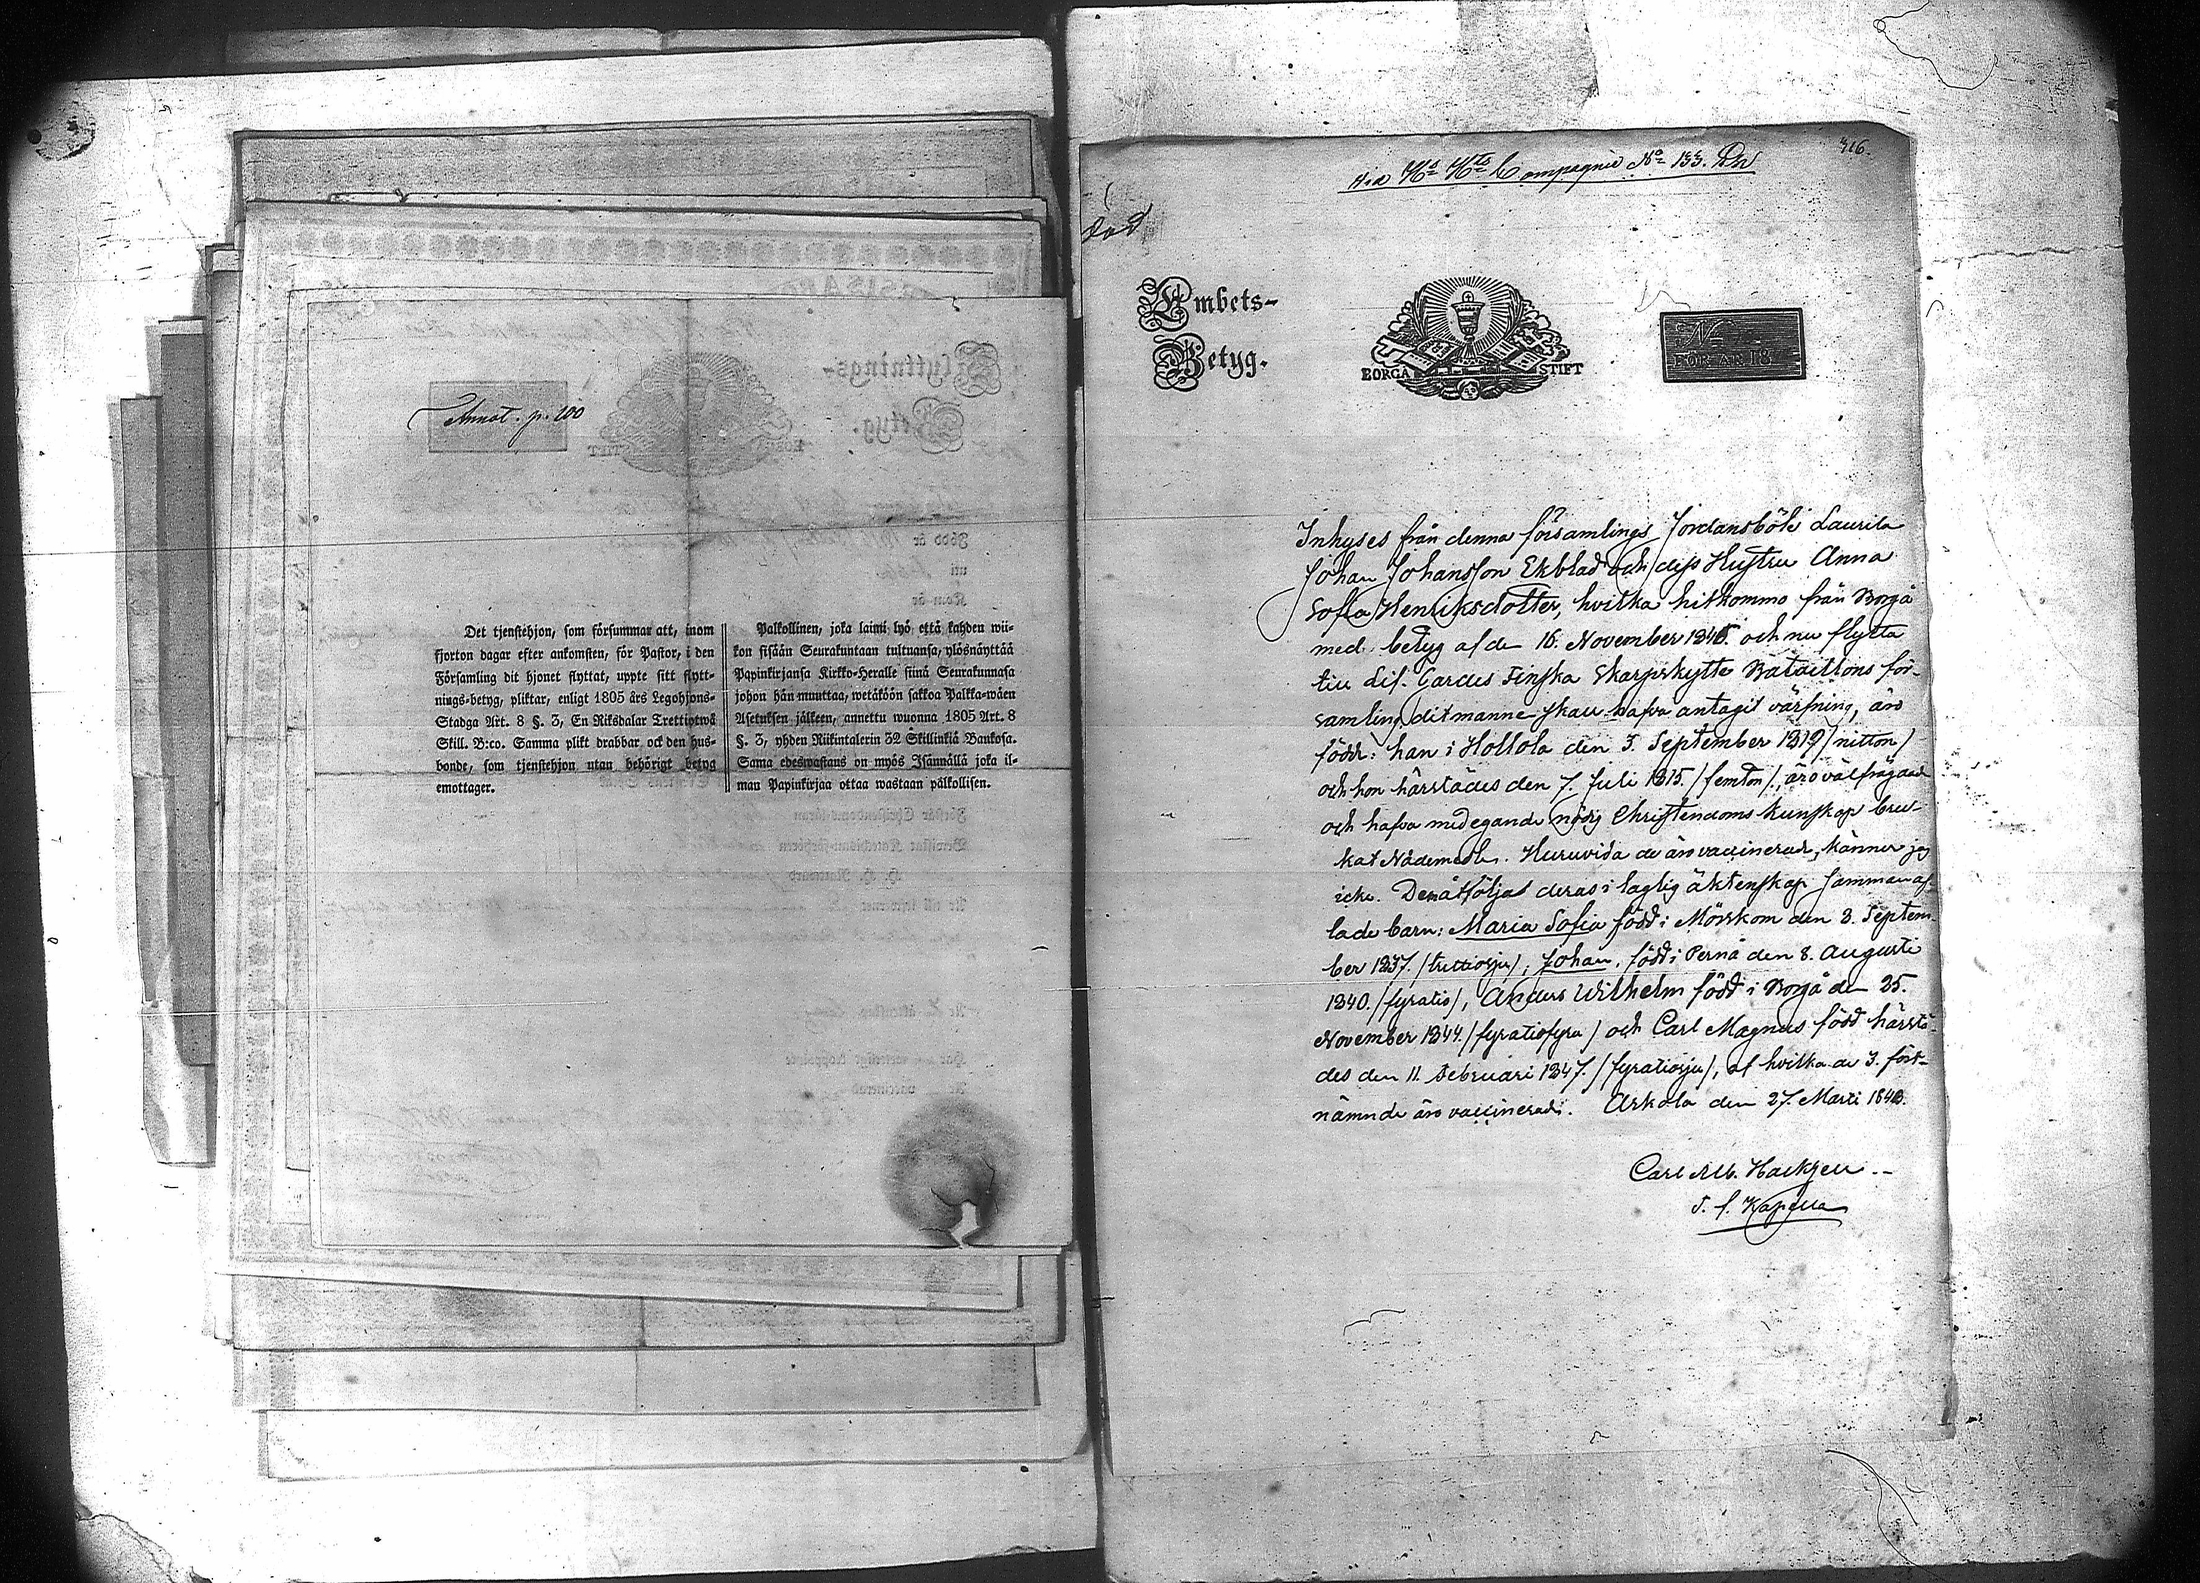 Annot. p. 200
Det tjenstehjon, som försummar att, inom
fjorton dagar efter ankomsten, för Pastor, i den
Församling dit hjonet flyttat, uppte sitt flytt-
nings-betyg, pliktar, enligt 1805 års Legohjons-
Stadga Art. 8 §. 3, En Riksdalar Trettiotwå
Skill. B:co. Samma plikt drabbar ock den hus-
bonde, som tjenstehjon utan behörigt betyg
emottager.
Palkollinen, joka laimi lyö että kahden wii-
kon sisään Seurakuntaan tultuansa, ylösnäyttää
Papinkirjansa Kirkko-Heralle siinä Seurakunnasa
johon hän muuttaa, wetäköön sakkoa Palkka-wäen
Asetuksen jälkeen, annettu wuonna 1805 Art. 8
§. 3, yhden Riikintalerin 32 Skillinkiä Bankosa.
Sama edeswastaus on myös Isännällä joka il-
man Papinkirjaa ottaa wastaan pälkollisen.
316.
Compagnie No 133.
död
Embets-
Betyg.
BORGÅ STIFT
No
FÖR ÅR 18
Inhyses från denna församlings Jordansböle Laurila
Johan Johansson Ekblad och dess Hustru Anna
Sofia Henriksdotter, hvilka hitkommo från Borgå
med betyg af den 16. November 1845. och nu flytta
till Lif-Gardes Finska Skarpskytte Bataillons för-
samling dit mannen skall hafva antagit värfning, äro
födde: han i Hollola den 3. September 1819 /nitton/
och hon härstädes den 7. Juli 1815 /femton/, äro välfrägdad
och hafva med egande nödig Christendoms kunskap bru-
kat Nådemedlen. Huruvida de äro vaccinerade, känner jag
icke. Demåtföljas deras i laglig äktenskap sammanaf-
lade barn: Maria Sofia född i Mörskom den 8. Septem-
ber 1837. /trettiosju/, Johan, född i Pernå den 8. Augusti
1840. /fyratio/, Anders Wilhelm född i Borgå den 25.
November 1844. /fyratiofyra/ och Carl Magnus född härstä-
des den 11. Februari 1847. /fyratiosju/, af hvilka de 3. först-
nämnde äro vaccinerade. Askola den 27. Martii 1848.
Carl Alb.